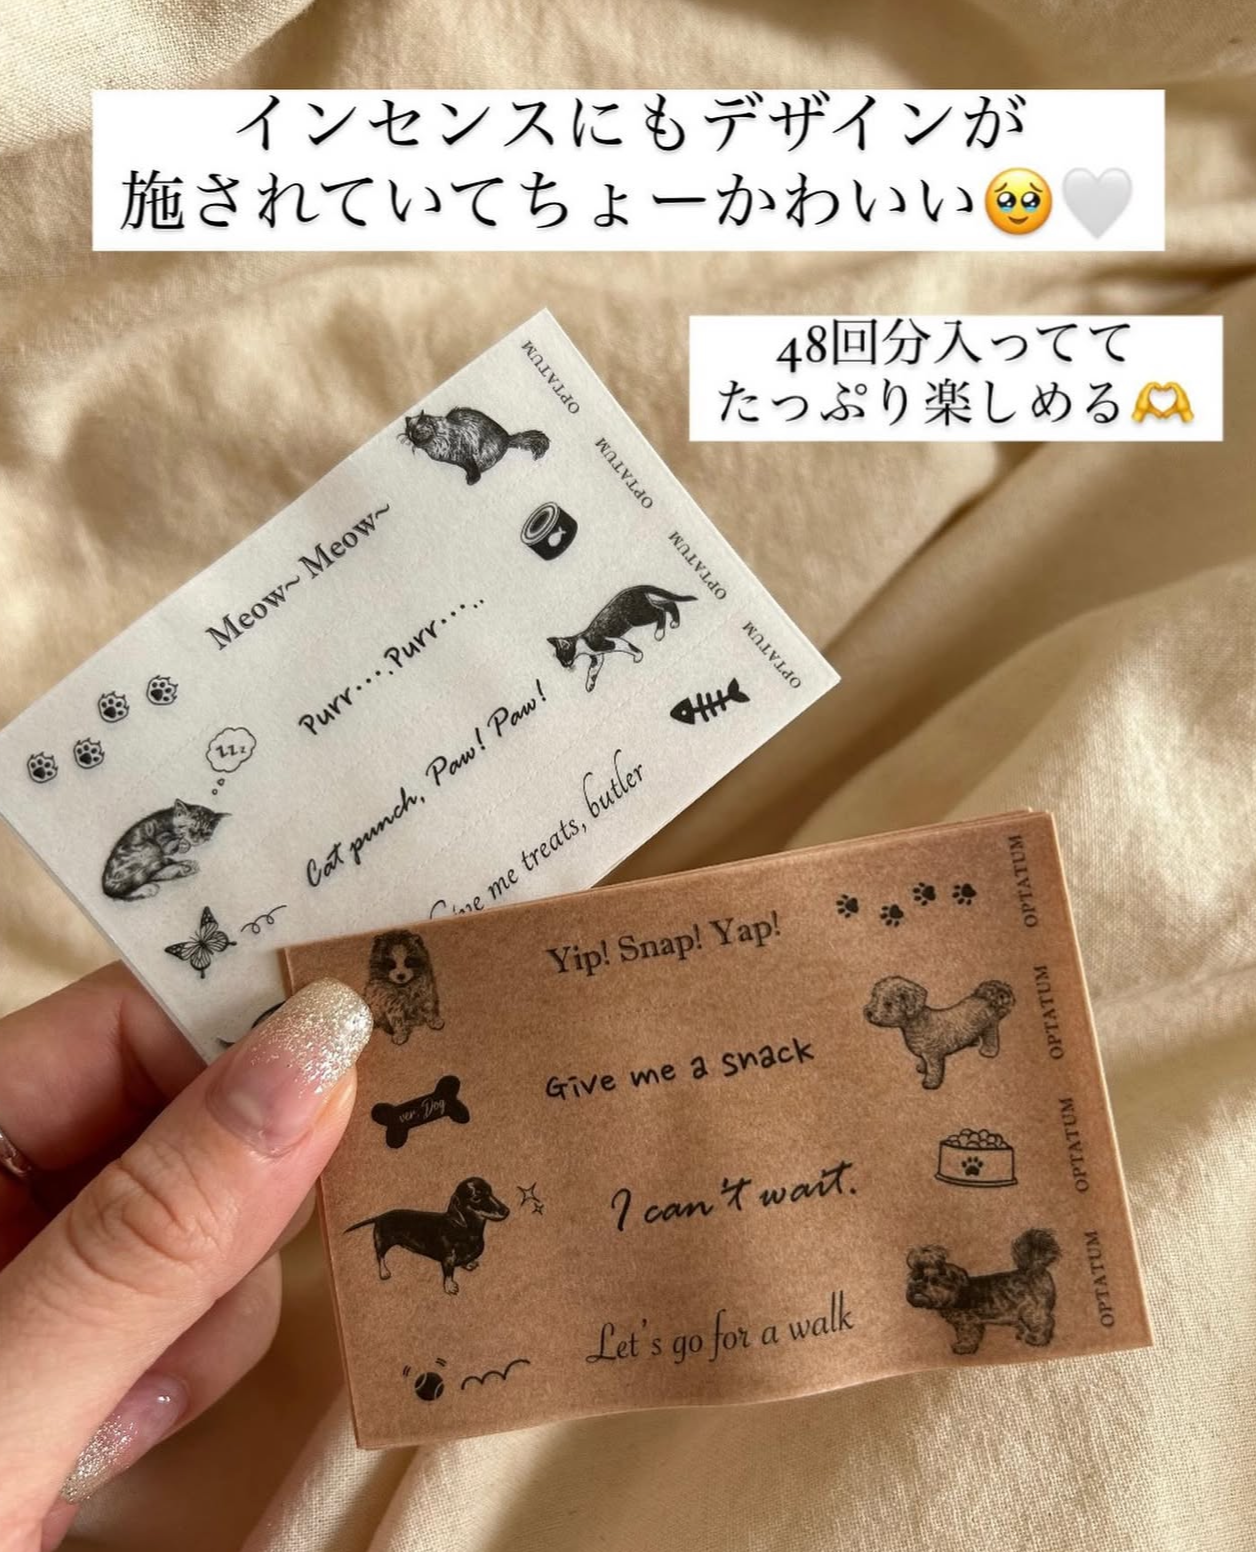 インセンスにもデザインが
施されていてちょーかわいい🥹🤍
48回分入ってて
たっぷり楽しめる🫶
OPTATUM
OPTATUM
OPTATUM
OPTATUM
Meow~ Meow~
Purr....Purr.....
zzz
Cat punch, Paw! Paw!
Give me treats, butler
Yip! Snap! Yap!
OPTATUM
Give me a snack
OPTATUM
ver. Dog
I can't wait.
OPTATUM
Let's go for a walk
OPTATUM